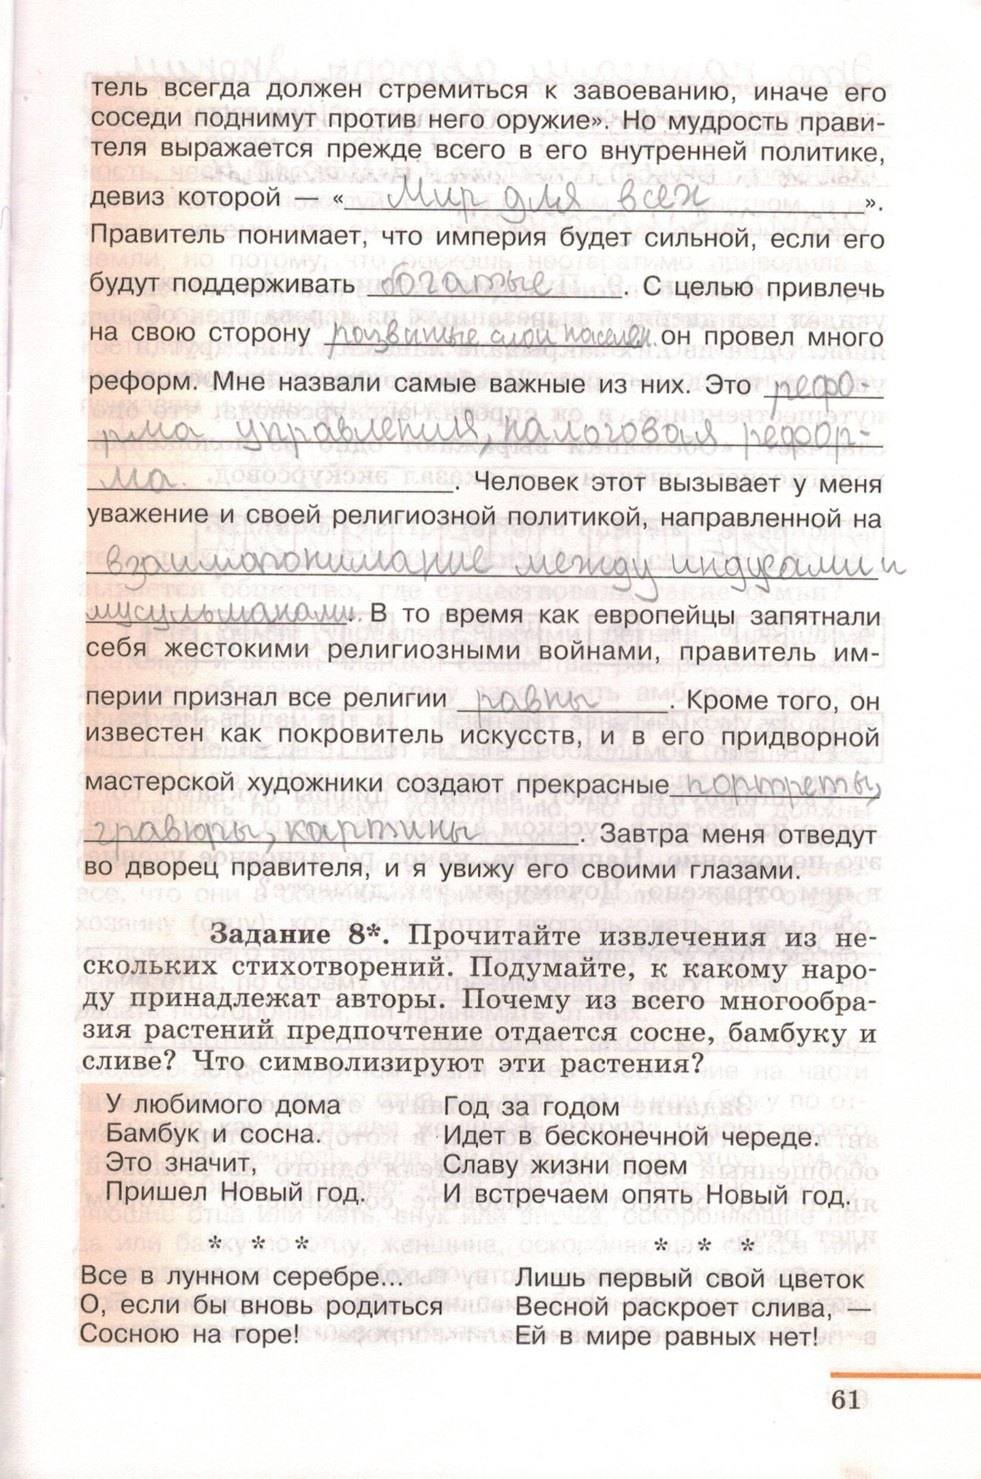 тель всегда должен стремиться к завоеванию, иначе его
соседи поднимут против него оружие». Но мудрость прави-
теля выражается прежде всего в его внутренней политике,
девиз которой — « Мир для всех ».
Правитель понимает, что империя будет сильной, если его
будут поддерживать богатые . С целью привлечь
на свою сторону развитые слои населен. он провел много
реформ. Мне назвали самые важные из них. Это рефо-
рма управления, налоговая рефор-
ма. . Человек этот вызывает у меня
уважение и своей религиозной политикой, направленной на
взаимопонимание между индусами и
мусульманами. В то время как европейцы запятнали
себя жестокими религиозными войнами, правитель им-
перии признал все религии равны . Кроме того, он
известен как покровитель искусств, и в его придворной
мастерской художники создают прекрасные портреты,
гравюры, картины . Завтра меня отведут
во дворец правителя, и я увижу его своими глазами.
Задание 8*. Прочитайте извлечения из не-
скольких стихотворений. Подумайте, к какому наро-
ду принадлежат авторы. Почему из всего многообра-
зия растений предпочтение отдается сосне, бамбуку и
сливе? Что символизируют эти растения?
У любимого дома
Бамбук и сосна.
Это значит,
Пришел Новый год.
* * *
Все в лунном серебре...
О, если бы вновь родиться
Сосною на горе!
Год за годом
Идет в бесконечной череде.
Славу жизни поем
И встречаем опять Новый год.
* * *
Лишь первый свой цветок
Весной раскроет слива, —
Ей в мире равных нет!
61